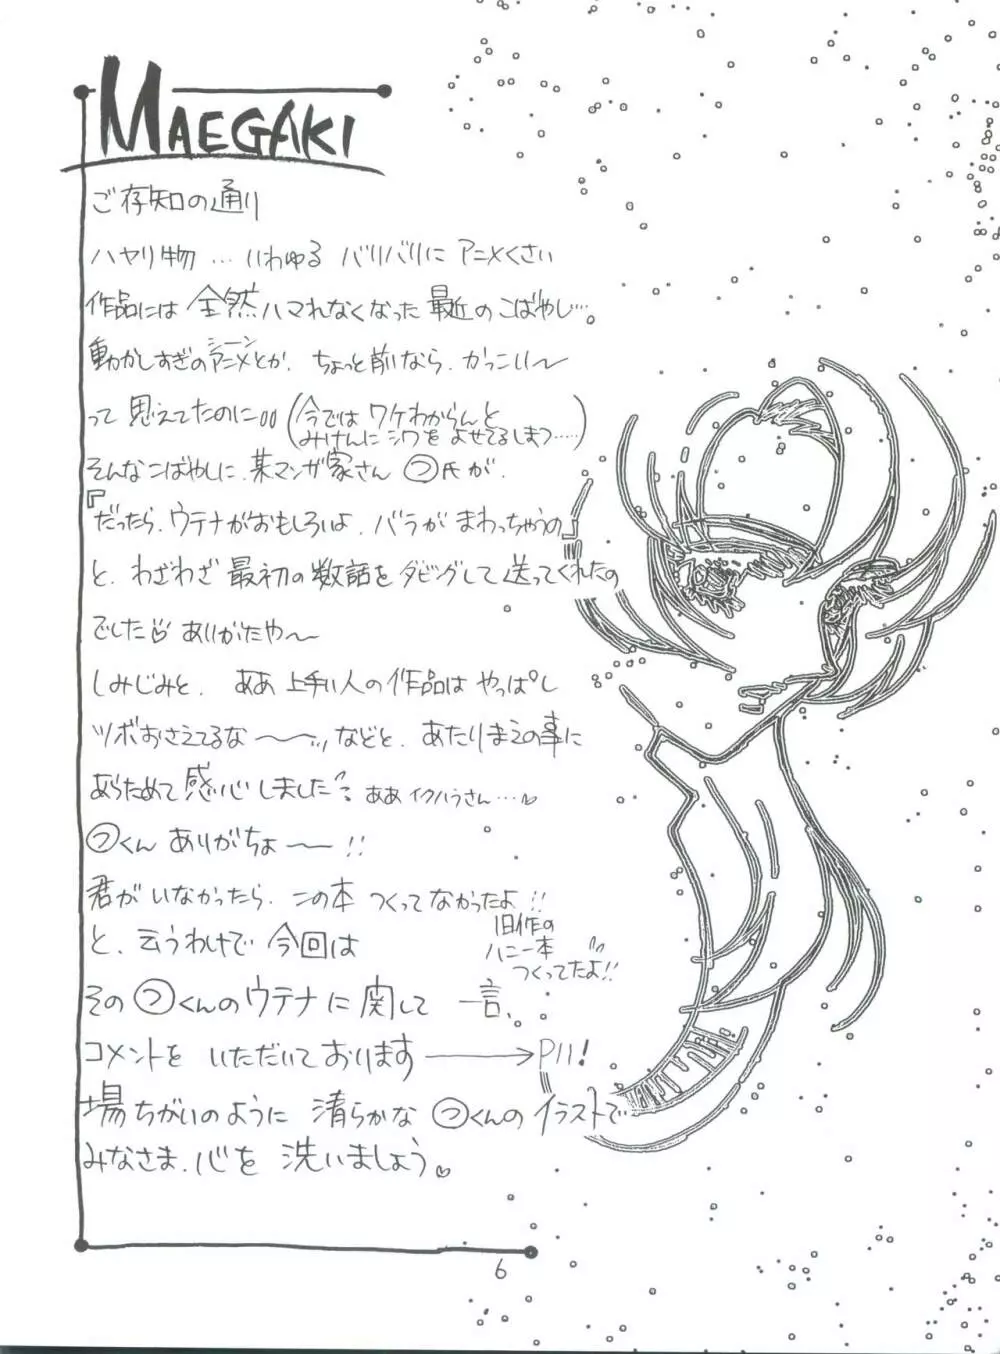 MAEGAKI
ご存知の通り
ハヤリ物…いわゆる バリバリに アニメくさい
作品には 全然ハマれなくなった 最近のこばやし…。
シーン
動かしすぎのアニメとか、ちょっと前なら、かっこい〜
って 思えてたのに
(今では ワケわからんと
みけんに シワを よせてるしまつ……)
そんなこばやしに、某マンガ家さん つ氏が、
『だったら、ウテナがおもしろいよ、バラが まわっちゃうの』
と、わざわざ 最初の数話を ダビングして 送ってくれたの
でした♡ ありがたや〜
しみじみと、 ああ 上手い人の作品は やっぱし
ツボおさえてるな〜〜…などと、あたりまえの事に
あらためて 感心しました ああ イクハラさん…♡
つくん ありがちょ〜!!
君が いなかったら、この本 つくってなかったよ!!
旧作の
ハニー本
つくってたよ!!
と、云うわけで 今回は
その つくんのウテナに 関して 一言、
コメントを いただいて おります → P11!
場ちがいのように 清らかな つくんの イラストで
みなさま、心を 洗いましょう。♡
6